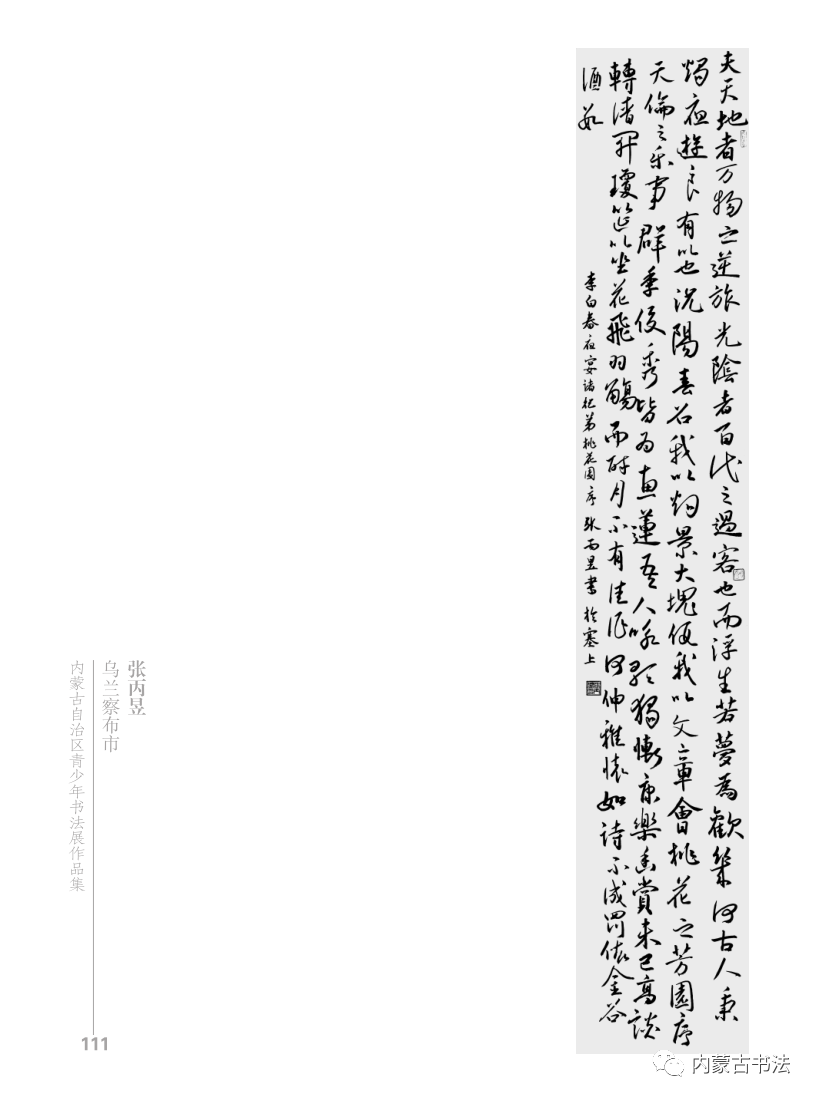 夫天地者万物之逆旅光陰者百代之過客也而浮生若夢為歡幾何古人秉
燭夜遊良有以也況陽春召我以烟景大塊假我以文章會桃花之芳園序
天倫之乐事群季俊秀皆为惠蓮吾人咏歌獨慚康樂幽賞未已高談
轉清開瓊筵以坐花飛羽觴而醉月不有佳作何伸雅懷如詩不成罰依金谷
酒數
李白春夜宴諸從弟桃花园序 张丙昱書於塞上
张丙昱
乌兰察布市
内蒙古自治区青少年书法展作品集
111
内蒙古书法